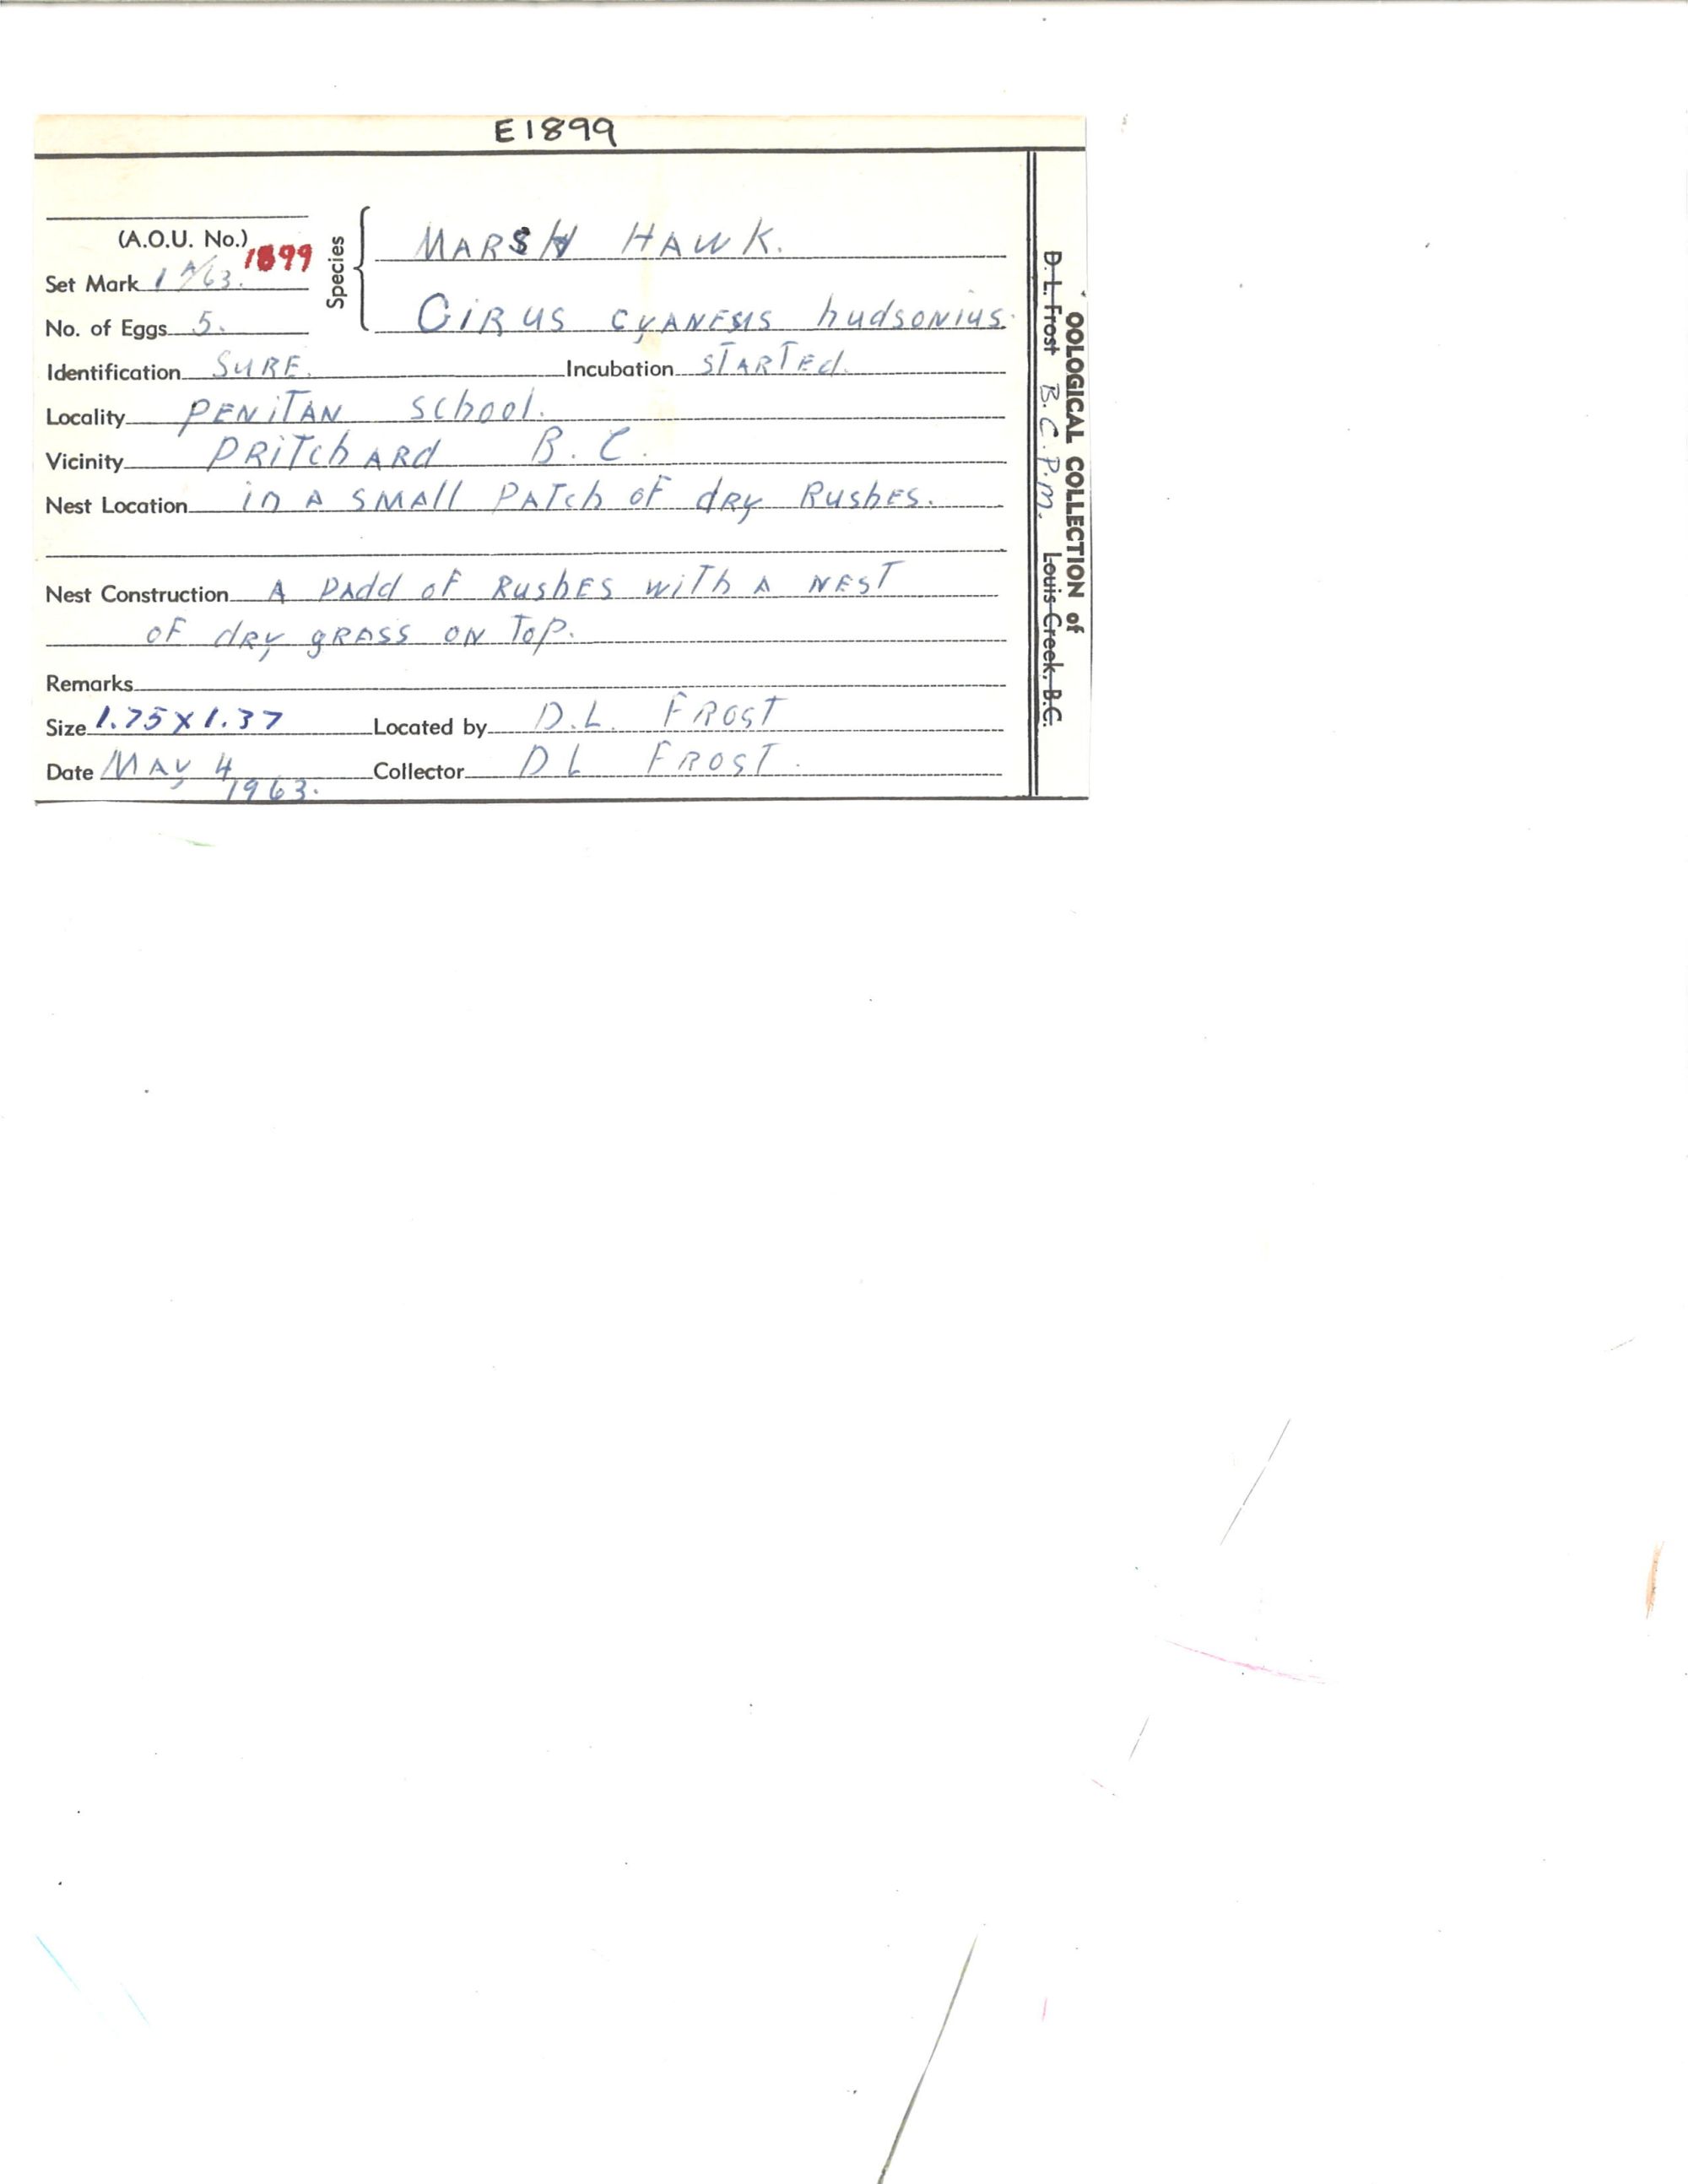 E1899
(A.O.U. No.) 1899
Set Mark 1 A/63.
No. of Eggs 5.
Species
MARSH HAWK.
CIRUS CYANESIS hudsonius.
Identification SURE. Incubation STARTEd.
Locality PENITAN School.
Vicinity PRITChARd B.C.
Nest Location in A SMAll PATch oF dRy RushES.
Nest Construction A PAdd oF RushES wiTh A NEST
oF dRy gRASS ON ToP.
Remarks
Size 1.75 X 1.37 Located by D.L. FROST
Date MAy 4 1963. Collector D L FROST.
OOLOGICAL COLLECTION of
D. L. Frost B.C.P.M. Louis Creek, B.C.